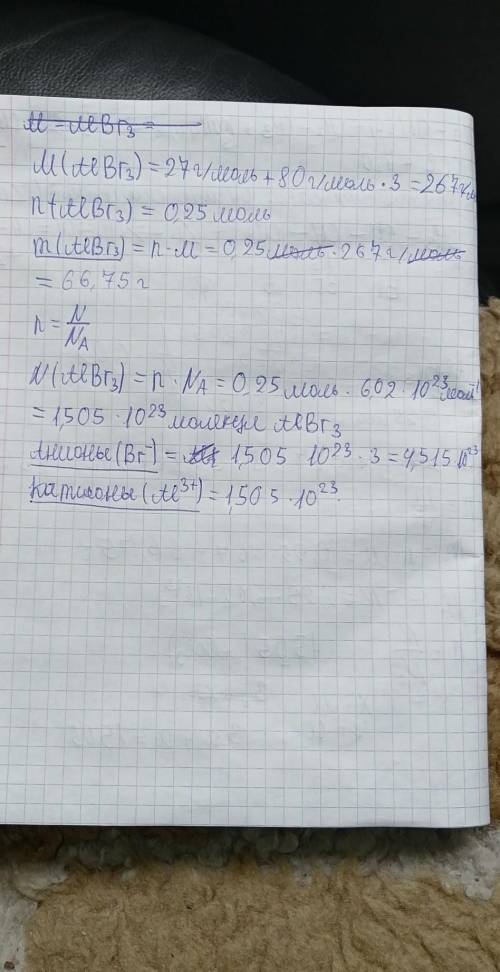 M(AlBr₃) = 27 г/моль + 80 г/моль · 3 = 267 г/м
n(AlBr₃) = 0,25 моль
m(AlBr₃) = n · M = 0,25 моль · 267 г/моль
= 66,75 г
n = N/N_A
N(AlBr₃) = n · N_A = 0,25 моль · 6,02 · 10²³ моль⁻¹
= 1,505 · 10²³ молекул AlBr₃
Анионы (Br⁻) = 1,505 10²³ · 3 = 4,515 10²³
Катионы (Al³⁺) = 1,505 · 10²³.